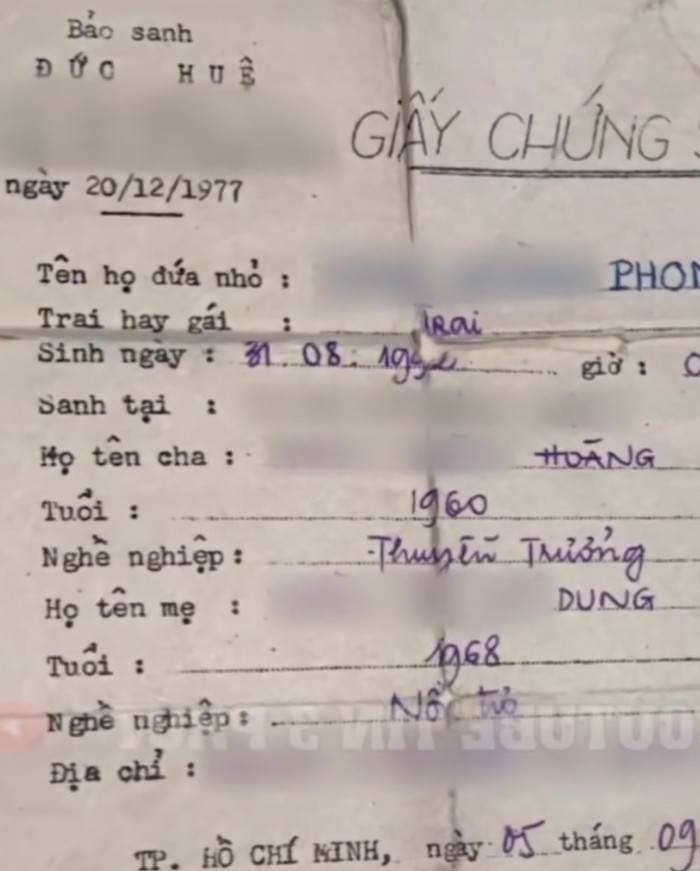 Bảo sanh
ĐỨC HUỆ
GIẤY CHỨNG
ngày 20/12/1977
Tên họ đứa nhỏ : PHON
Trai hay gái : Trai
Sinh ngày : 31.08. giờ : 0
Sanh tại :
Họ tên cha : HOÀNG
Tuổi : 1960
Nghề nghiệp : Thuyền Trưởng
Họ tên mẹ : DUNG
Tuổi : 1968
Nghề nghiệp : Nội trợ
Địa chỉ :
TP. HỒ CHÍ MINH, ngày 05 tháng 09